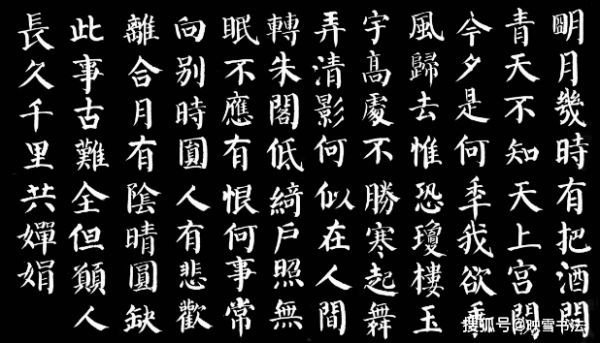 明月幾時有把酒問
青天不知天上宮闕
今夕是何秊我欲乘
風歸去惟恐瓊樓玉
宇髙處不勝寒起舞
弄清影何似在人間
轉朱閣低綺戶照無
眠不應有恨何事常
向別時圓人有悲歡
離合月有陰晴圓缺
此事古難全但願人
長久千里共嬋娟
搜狐号@映雪书法